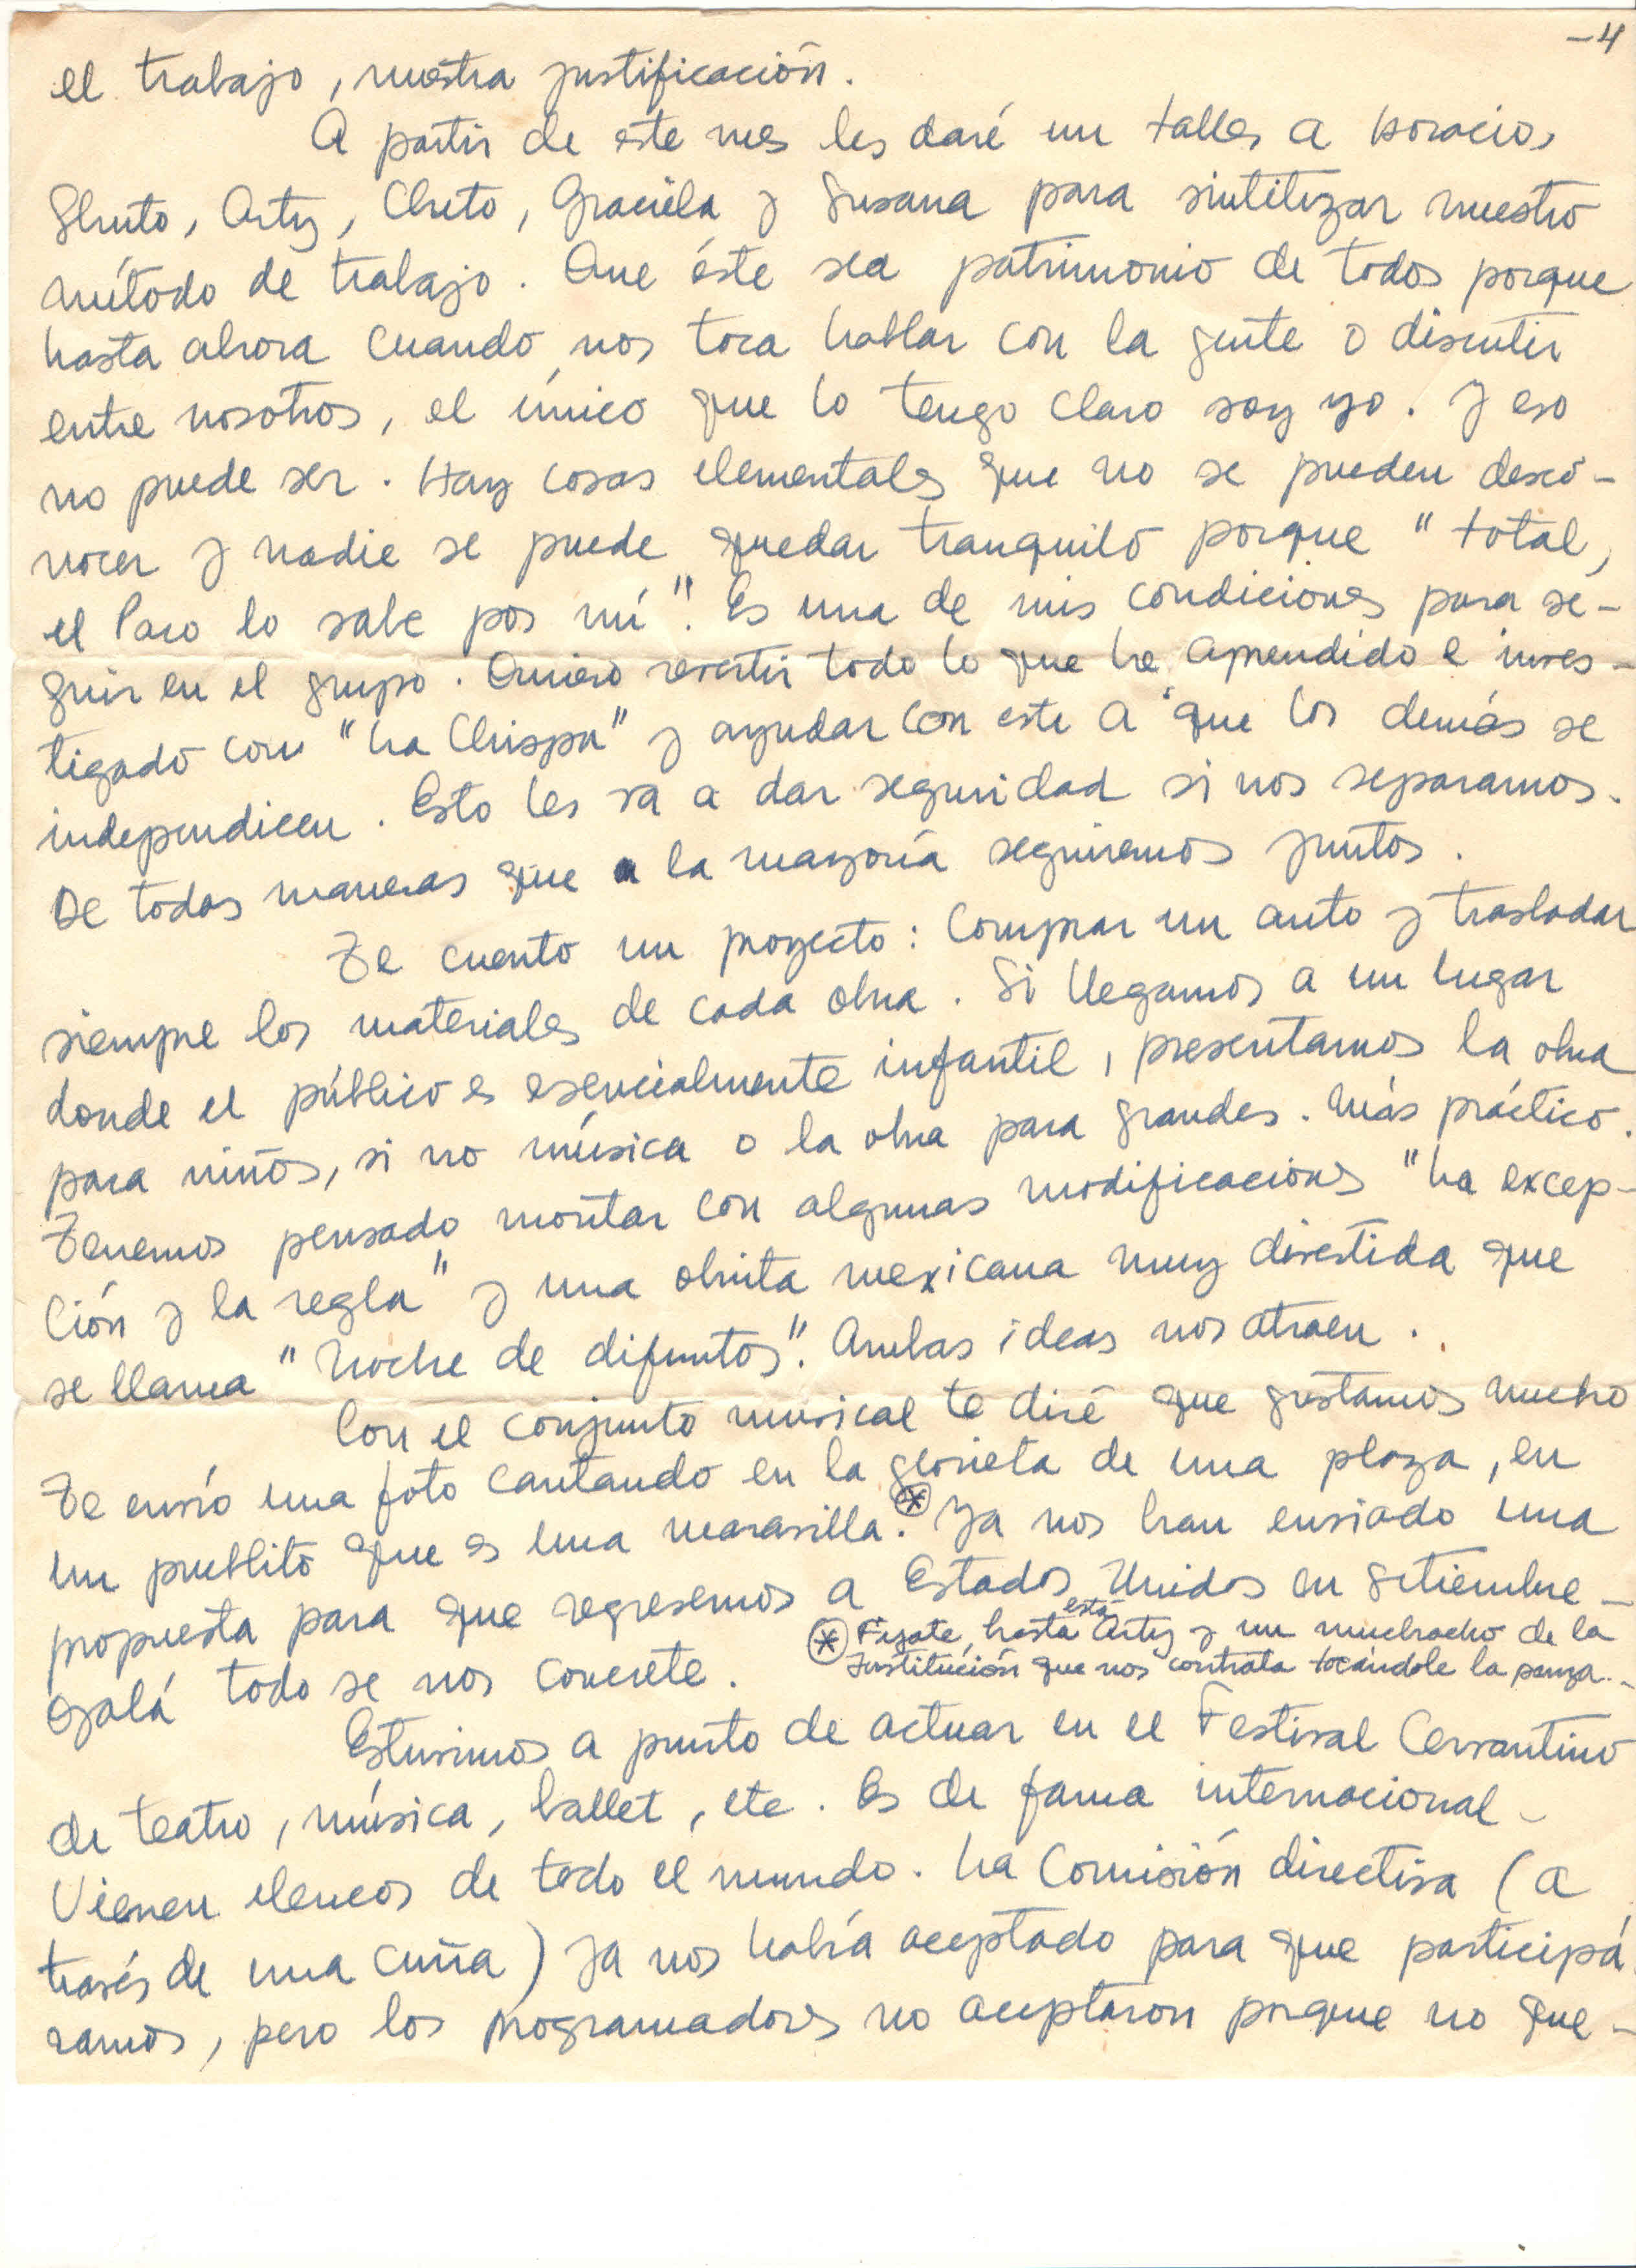 -4
el trabajo, nuestra justificación.
A partir de este mes les daré un taller a Horacio,
Arty, Cheto, Graciela y Susana para sintetizar nuestro
método de trabajo. Que éste sea patrimonio de todos porque
hasta ahora cuando nos toca hablar con la gente o discutir
entre nosotros, el único que lo tengo claro soy yo. Y eso
no puede ser. Hay cosas elementales que no se pueden desco-
nocer y nadie se puede quedar tranquilo porque "total,
el Paco lo sabe por mí". Es una de mis condiciones para se-
guir en el grupo. Quiero revertir todo lo que he aprendido e inves-
tigado con "La Chispa" y ayudar con este a que los demás se
independicen. Esto les va a dar seguridad si nos separamos.
De todas maneras que la mayoría seguiremos juntos.
Te cuento un proyecto: Comprar un auto y trasladar
siempre los materiales de cada obra. Si llegamos a un lugar
donde el público es esencialmente infantil, presentamos la obra
para niños, si no música o la obra para grandes. Más práctico.
Tenemos pensado montar con algunas modificaciones "La excep-
ción y la regla" y una obrita mexicana muy divertida que
se llama "Noche de difuntos". Ambas ideas nos atraen.
Con el conjunto musical te diré que gustamos mucho
Te envío una foto cantando en la glorieta de una plaza, en
un pueblito que es una maravilla.(*) Ya nos han enviado una
propuesta para que regresemos a Estados Unidos en Setiembre -
Ojalá todo se nos concrete.
(*) Fijate, hasta está Arty y un muchacho de la
Institución que nos contrata tocándole la panza..-
Estuvimos a punto de actuar en el Festival Cervantino
de teatro, música, ballet, etc. Es de fama internacional -
Vienen elencos de todo el mundo. La Comisión directiva (a
través de una cuña) ya nos había aceptado para que participá
ramos, pero los programadores no aceptaron porque no que-